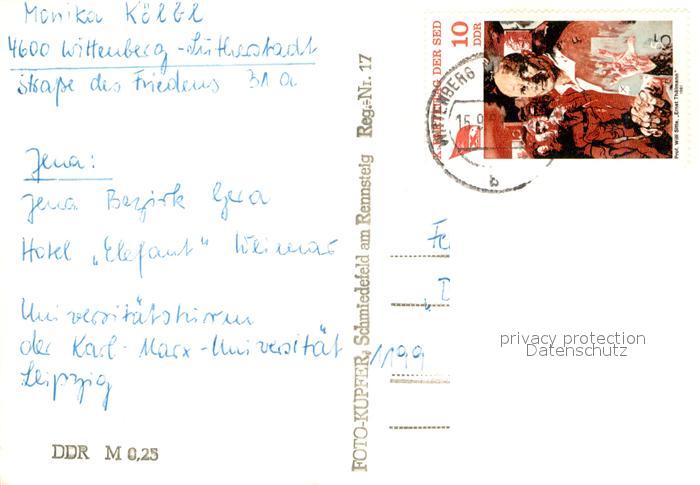 Monika Költl
4600 Wittenberg-Lutherstadt
Straße des Friedens 31a
Jena:
Jena Bezirk Gera
Hotel „Elefant" Weimar
Universitätsturm
der Karl-Marx-Universität
Leipzig
/199
DDR M 0,25
FOTO-KUPFER, Schmiedefeld am Rennsteig Reg.-Nr. 17
PARTEITAG DER SED
10
DDR
Prof. Willi Sitte, „Ernst Thälmann"
1981
WITTENBERG
15.9
a
privacy protection
Datenschutz